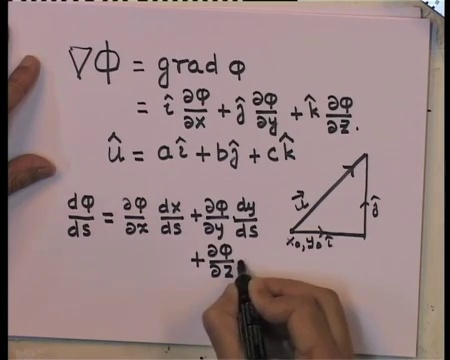 ∇Φ = grad φ
= î ∂φ/∂x + ĵ ∂φ/∂y + k̂ ∂φ/∂z.
û = aî + bĵ + ck̂
dφ/ds = ∂φ/∂x dx/ds + ∂φ/∂y dy/ds
+ ∂φ/∂z
u⃗
ĵ
x₀, y₀ î